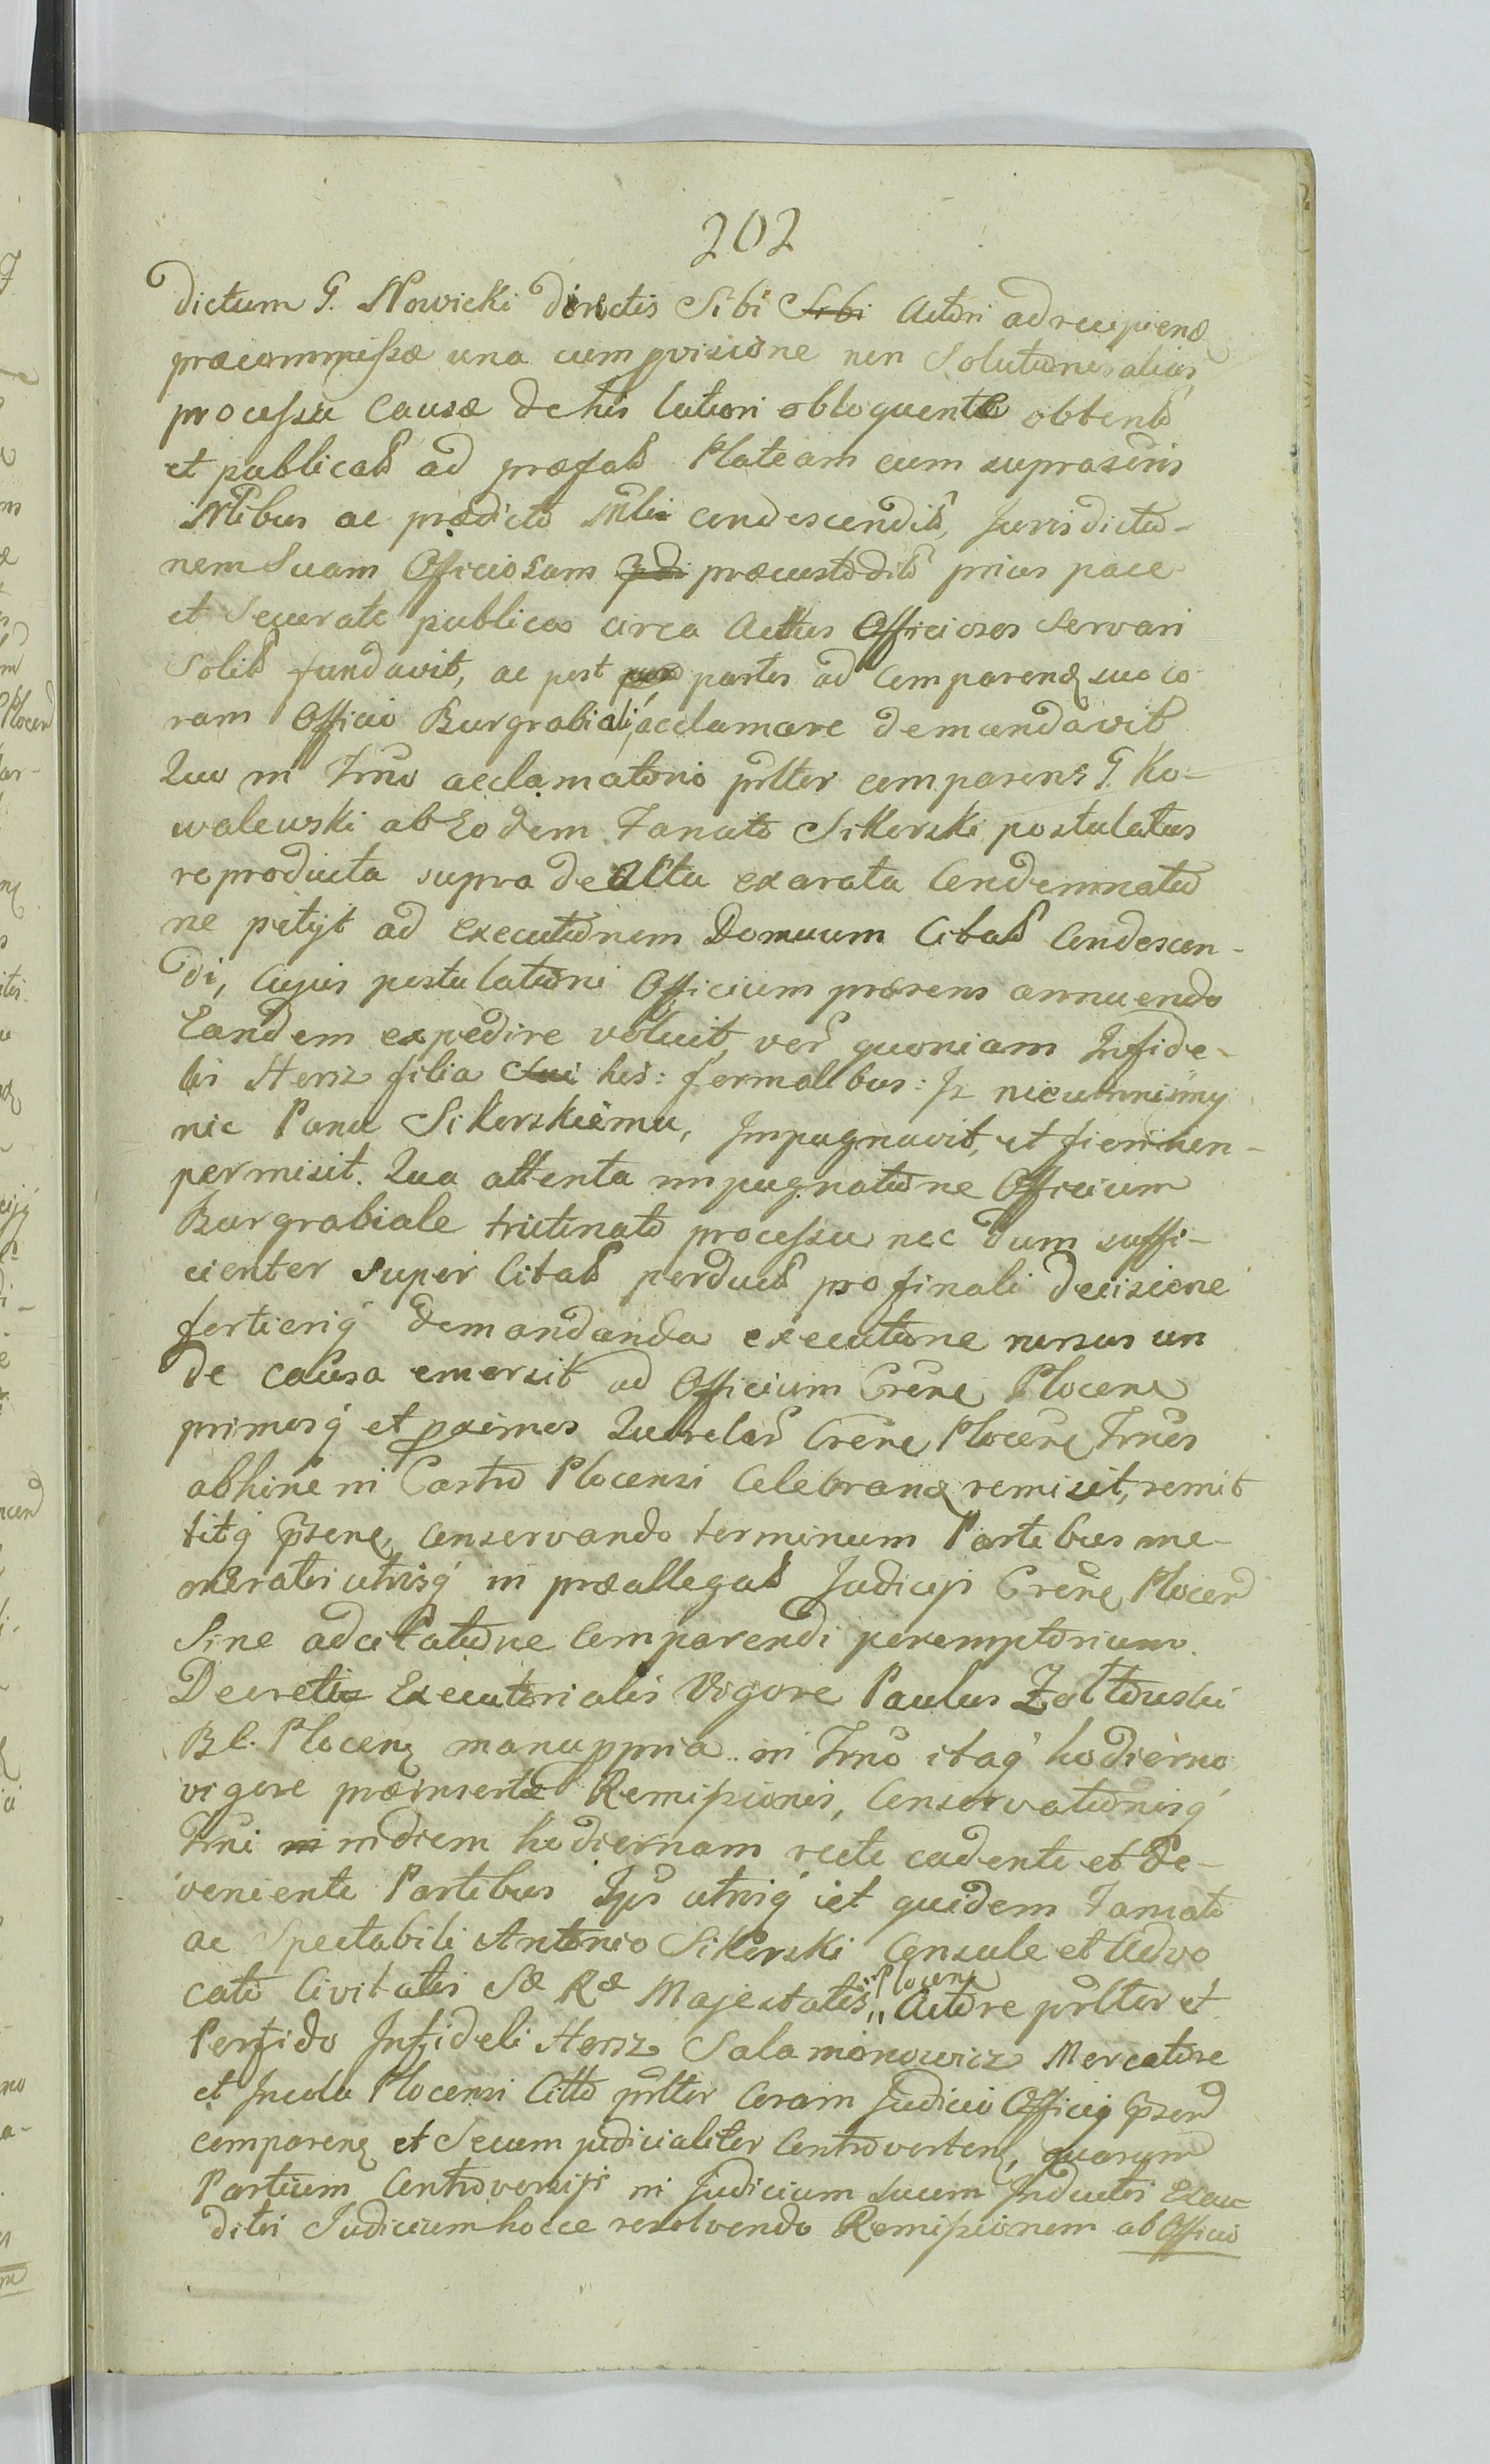 202
dictum G. Nowicki dirictis Sibi Sibi Actori ad recipiend
præcommissæ una cum provisione non Solutionis alias
processu Causæ de his latiori obloquente obtento
et publicato ad præfat Plateam cum suprascriis
Nlibus ac prædicto Mli condescendit, Jurisdictio-
nem Suam Officiosam præcustodito prius pace
et Securate publica circa Actus Officiosos Servari
Solit fundavit, ac post partes ad Comparend suo co-
ram Officio Burgrabiali, acclamare demandavit
Quo in Trno acclamatorio pslter comparens G. Ko-
walewski ab Eodem Famato Sikorski postulatus
reproducta supra de Actu exarata Condemnatio
ne petijt ad executionem Domuum Citat Condescen-
di, Cujus postulationi Officium præsens annuendo
Eandem expedire voluit, vers quoniam Infide-
lis Hersz filia his: formalibus: Jz nie winnismy
nic Panu Sikorskiemu, Impugnavit, et fieri non-
permisit. Qua attenta impugnatione Officium
Burgrabiale trutinato processu nec dum suffi-
cienter super Citat perduct pro finali decisione
fortioriq demandanda executione rursus un
de causa emersit ad Officium Crense Plocense
primosq et proximos Querelar Crens Plocens Trnos
abhinc in Castro Plocensi Celebrand remisit, remit
titq prsens, Conservando terminum Partibus me-
moratis utrisq in præallegat Judiciji Crens Plocen
Sine adcitatione Comparendi peremptorium.
Decretis Executorialis Vigore Paulus Żołtowski
B C. Plocens manu ppria. in Trno itaq hodierno
vigore præinsertæ Remissionis, Conservationisq
Trni in diem hodiernam recte cadente et de-
veniente Partibus Ips utrisq et quidem Famato
ac Spectabili Antonio Sikorski Consule et Advo
cato Civitatis Sæ Ræ Majestatis "Plocens" Actore pslter et
Perfido Infideli Hersz Salamonowicz Mercatore
et Incola Plocensi Citto pslter Coram Judicio Officij prsen
comparend et Secum judicialiter Controverten, quarum
Partium Controversijs in Judicium suum Inductis Exau
ditis Judicium hocce resolvendo Remissionem ab Officio